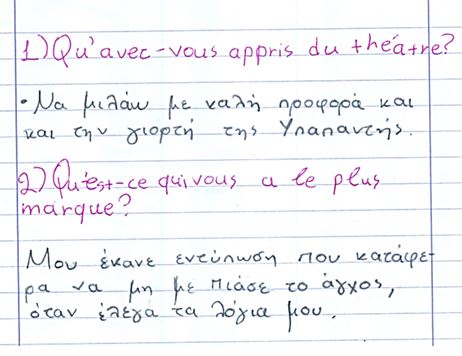 1) Qu'avec-vous appris du théatre?
• Να μιλάω με καλή προφορά και
και την γιορτή της Υπαπαντής.
2) Qu'est-ce qui vous a le plus
marque?
Μου έκανε εντύπωση που κατάφε-
ρα να μη με πιάσε το άγχος,
όταν έλεγα τα λόγια μου.